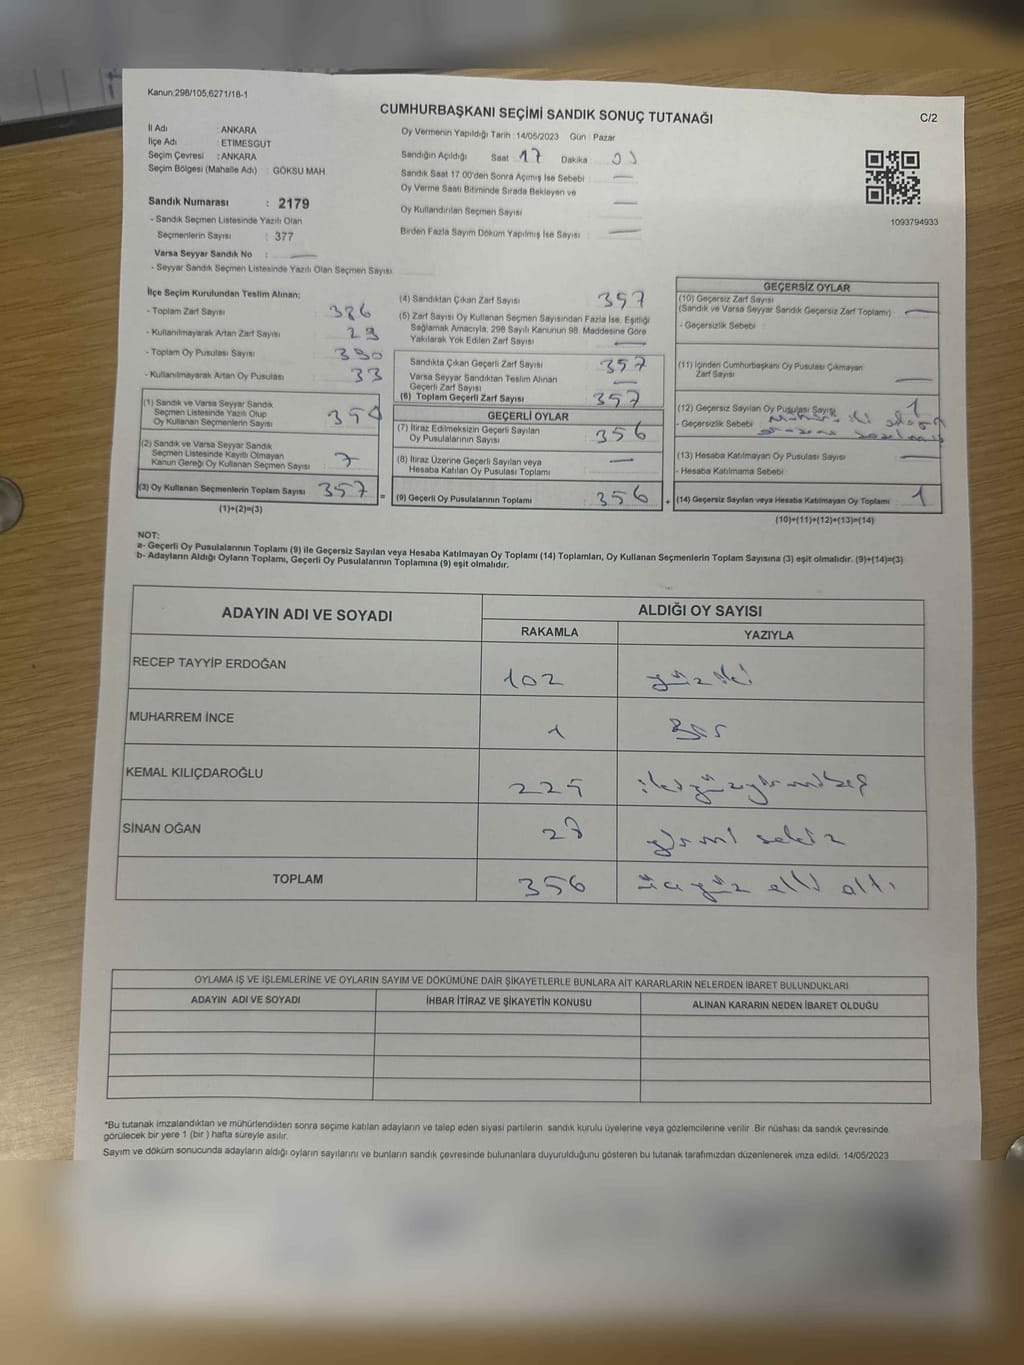 Kanun:298/105,6271/18-1
CUMHURBAŞKANI SEÇİMİ SANDIK SONUÇ TUTANAĞI
C/2
İl Adı : ANKARA
İlçe Adı : ETİMESGUT
Seçim Çevresi : ANKARA
Seçim Bölgesi (Mahalle Adı) : GÖKSU MAH
Oy Vermenin Yapıldığı Tarih : 14/05/2023 Gün : Pazar
Sandığın Açıldığı Saat 17 Dakika
Sandık Saat 17 00'den Sonra Açımış İse Sebebi —
Oy Verme Saati Bitiminde Sırada Bekleyen ve
Oy Kullandırılan Seçmen Sayısı —
Birden Fazla Sayım Döküm Yapılmış İse Sayısı —
1093794933
Sandık Numarası : 2179
- Sandık Seçmen Listesinde Yazılı Olan
Seçmenlerin Sayısı : 377
Varsa Seyyar Sandık No : —
- Seyyar Sandık Seçmen Listesinde Yazılı Olan Seçmen Sayısı
İlçe Seçim Kurulundan Teslim Alınan;
- Toplam Zarf Sayısı : 386
- Kullanılmayarak Artan Zarf Sayısı : 29
- Toplam Oy Pusulası Sayısı : 390
- Kullanılmayarak Artan Oy Pusulası : 33
(1) Sandık ve Varsa Seyyar Sandık
Seçmen Listesinde Yazılı Olup
Oy Kullanan Seçmenlerin Sayısı : 350
(2) Sandık ve Varsa Seyyar Sandık
Seçmen Listesinde Kayıtlı Olmayan
Kanun Gereği Oy Kullanan Seçmen Sayısı : 7
(3) Oy Kullanan Seçmenlerin Toplam Sayısı 357
(1)+(2)=(3)
(4) Sandıktan Çıkan Zarf Sayısı 357
(5) Zarf Sayısı Oy Kullanan Seçmen Sayısından Fazla İse, Eşitliği
Sağlamak Amacıyla; 298 Sayılı Kanunun 98. Maddesine Göre
Yakılarak Yok Edilen Zarf Sayısı —
Sandıkta Çıkan Geçerli Zarf Sayısı 357
Varsa Seyyar Sandıktan Teslim Alınan
Geçerli Zarf Sayısı —
(6) Toplam Geçerli Zarf Sayısı 357
GEÇERLİ OYLAR
(7) İtiraz Edilmeksizin Geçerli Sayılan
Oy Pusulalarının Sayısı 356
(8) İtiraz Üzerine Geçerli Sayılan veya
Hesaba Katılan Oy Pusulası Toplamı —
= (9) Geçerli Oy Pusulalarının Toplamı 356
GEÇERSİZ OYLAR
(10) Geçersiz Zarf Sayısı
(Sandık ve Varsa Seyyar Sandık Geçersiz Zarf Toplamı) —
- Geçersizlik Sebebi
(11) İçinden Cumhurbaşkanı Oy Pusulası Çıkmayan
Zarf Sayısı —
(12) Geçersiz Sayılan Oy Pusulası Sayısı 1
- Geçersizlik Sebebi
(13) Hesaba Katılmayan Oy Pusulası Sayısı —
- Hesaba Katılmama Sebebi
+ (14) Geçersiz Sayılan veya Hesaba Katılmayan Oy Toplamı 1
(10)+(11)+(12)+(13)=(14)
NOT:
a- Geçerli Oy Pusulalarının Toplamı (9) ile Geçersiz Sayılan veya Hesaba Katılmayan Oy Toplamı (14) Toplamları, Oy Kullanan Seçmenlerin Toplam Sayısına (3) eşit olmalıdır. (9)+(14)=(3)
b- Adayların Aldığı Oyların Toplamı, Geçerli Oy Pusulalarının Toplamına (9) eşit olmalıdır.
ADAYIN ADI VE SOYADI ALDIĞI OY SAYISI
RAKAMLA YAZIYLA
RECEP TAYYİP ERDOĞAN 102 yüz iki
MUHARREM İNCE 1 Bir
KEMAL KILIÇDAROĞLU 225 ikiyüzyirmibeş
SİNAN OĞAN 28 yirmi sekiz
TOPLAM 356 üçyüz elli altı
OYLAMA İŞ VE İŞLEMLERİNE VE OYLARIN SAYIM VE DÖKÜMÜNE DAİR ŞİKAYETLERLE BUNLARA AİT KARARLARIN NELERDEN İBARET BULUNDUKLARI
ADAYIN ADI VE SOYADI İHBAR İTİRAZ VE ŞİKAYETİN KONUSU ALINAN KARARIN NEDEN İBARET OLDUĞU
*Bu tutanak imzalandıktan ve mühürlendikten sonra seçime katılan adayların ve talep eden siyasi partilerin sandık kurulu üyelerine veya gözlemcilerine verilir. Bir nüshası da sandık çevresinde
görülecek bir yere 1 (bir ) hafta süreyle asılır.
Sayım ve döküm sonucunda adayların aldığı oyların sayılarını ve bunların sandık çevresinde bulunanlara duyurulduğunu gösteren bu tutanak tarafımızdan düzenlenerek imza edildi. 14/05/2023